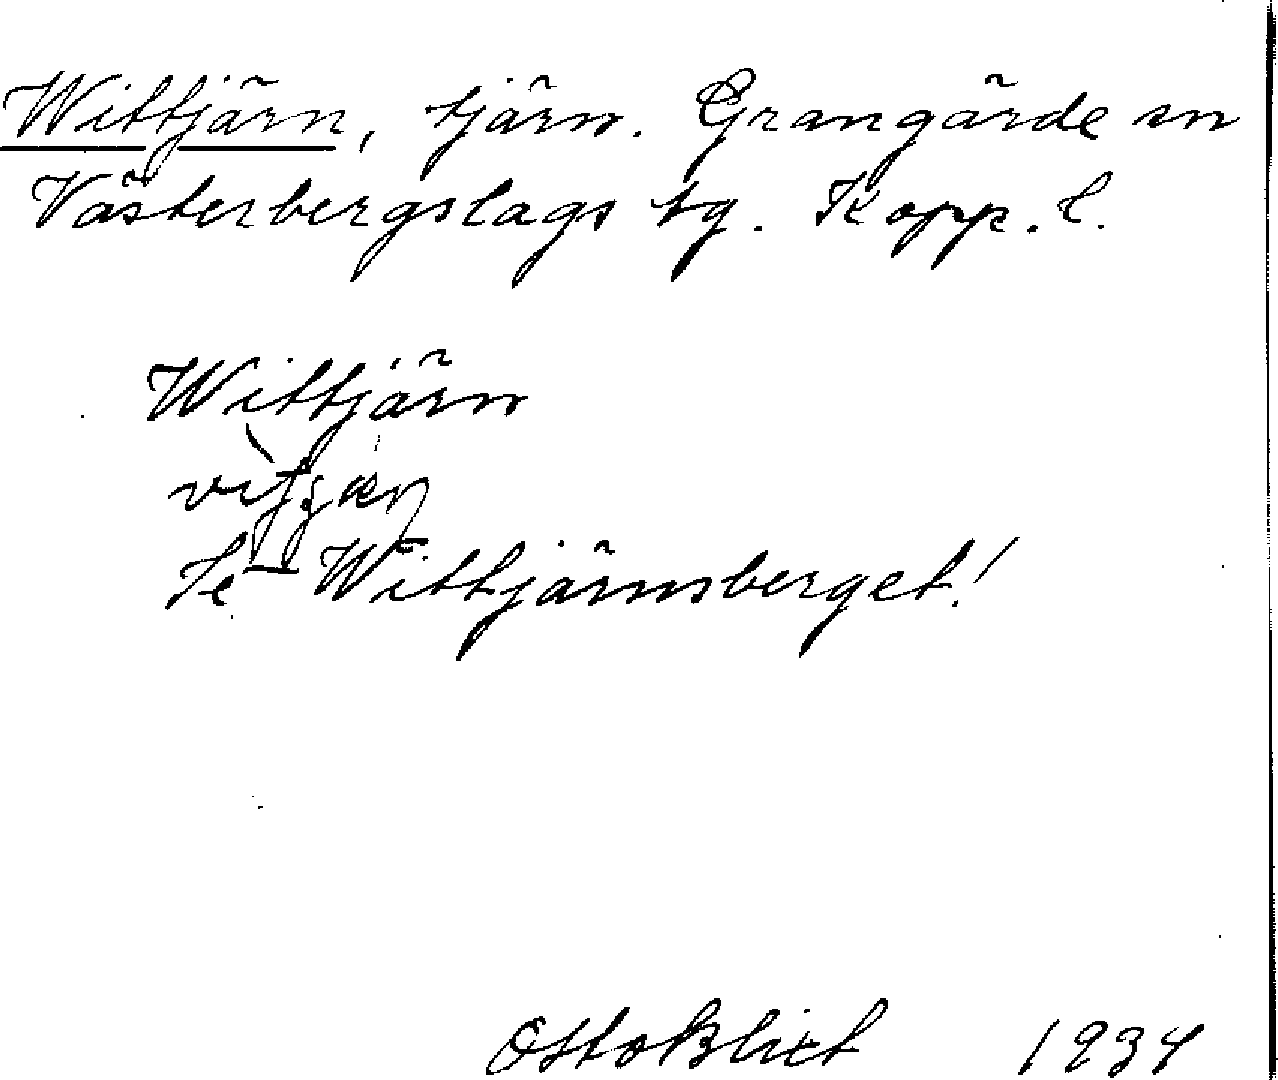 Wittjärn, tjärn. Grangärde sn
Västerbergslags tg. Kopp. l.
Wittjärn
Se Wittjärnsberget!
Otto Blixt 1934